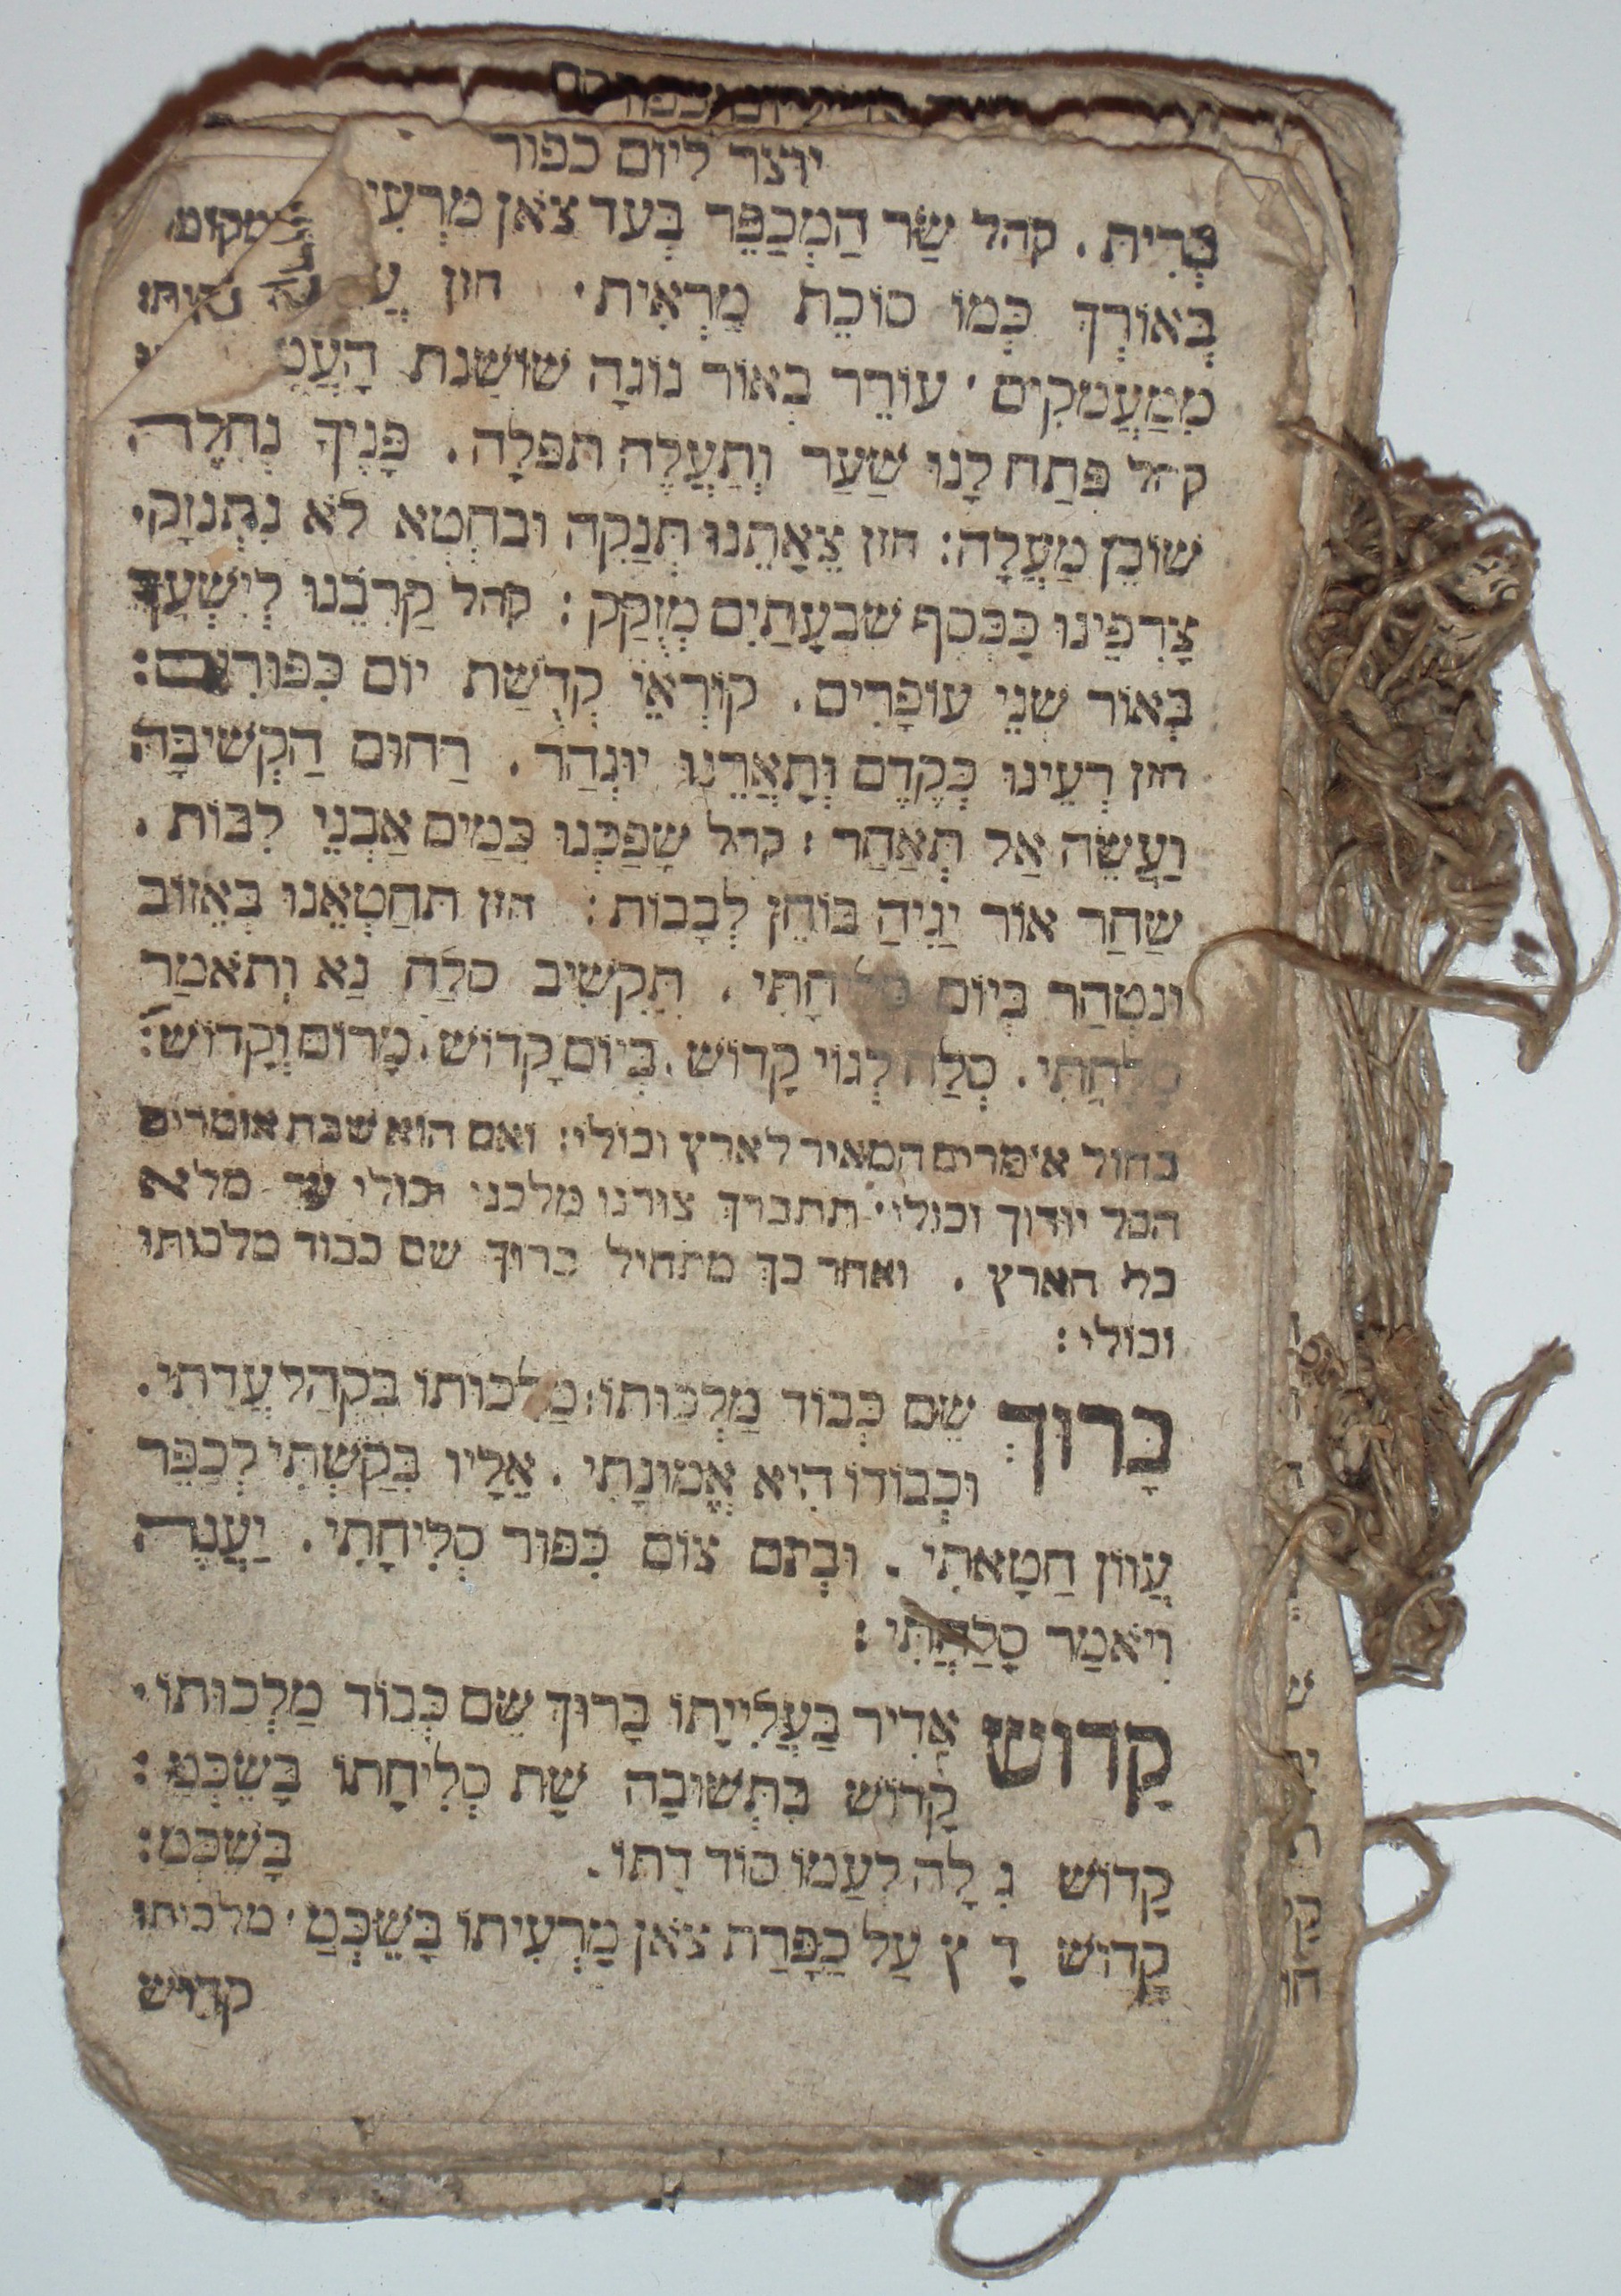 יוצר ליום כפור
בְּרִית. קהל שַׂר הַמְכַפֵּר בְּעַד צֹאן
בְּאוֹרְךָ כְּמוֹ סוֹכֵת מַרְאִית. חזן
מִמַעֲמַקִים. עוֹרֵר כְּאוֹר נוֹגַהּ שׁוֹשַׁנַת
קהל פְּתַח לָנוּ שַׁעַר וְתַעֲלֶה תְּפִלָּה. פָּנֶיךָ נְחַלֶּה
שׁוֹכֵן מַעְלָה: חזן צֵאָתֵנוּ תְּנַקֶּה וּבְחֵטְא לֹא נִתְנַזָּק.
צָרְפֵינוּ כַּכֶּסֶף שִׁבְעָתַיִם מְזֻקָּק: קהל קָרְבֵנוּ לְיִשְׁעֲךָ
בְּאוֹר שְׁנֵי עוֹפָרִים. קוֹרְאֵי קְדֻשַּׁת יוֹם כִּפּוּרִים:
חזן רְעֵינוּ כְּקֶדֶם וְתָאֳרֵנוּ יוּנְהַר. רַחוּם הַקְשִׁיבָה
וַעֲשֵׂה אַל תְּאַחַר: קהל שָׁפַכְנוּ כַּמַּיִם אַבְנֵי לִבּוֹת.
שַׁחַר אוֹר יַגִּיהַּ בּוֹחֵן לְבָבוֹת: חזן תְּחַטְּאֵנוּ בְּאֵזוֹב
וְנִטְהַר בְּיוֹם סְלִיחָתִי. תַּקְשִׁיב סְלַח נָא וְתֹאמַר
סָלָחְתִּי. סְלַח לְגוֹי קָדוֹשׁ. בְּיוֹם קָדוֹשׁ. מָרוֹם וְקָדוֹשׁ:
בחול אומרים המאיר לארץ וכולי: ואם הוא שבת אומרים
הכל יודוך וכולי. תתברך צורנו מלכני וכולי עד מלא
כל הארץ. ואחר כך מתחיל ברוך שם כבוד מלכותו
וכולי:
בָּרוּךְ שֵׁם כְּבוֹד מַלְכוּתוֹ: מַלְכוּתוֹ בִּקְהַל עֲדָתִי.
וּכְבוֹדוֹ הִיא אֱמוּנָתִי. אֵלָיו בִּקַשְׁתִּי לְכַפֵּר
עֲוֹון חַטָּאתִי. וּבְתֹם צוֹם כִּפּוּר סְלִיחָתִי. יַעֲנֶה
וְיֹאמַר סָלַחְתִּי:
קָדוֹשׁ אַדִּיר בַּעֲלִיָּיתוֹ בָּרוּךְ שֵׁם כְּבוֹד מַלְכוּתוֹ.
קָדוֹשׁ בִּתְּשׁוּבָה שָׁת סְלִיחָתוֹ בָּשֵׁכְּמַ:
קָדוֹשׁ גִּלָּה לְעַמּוֹ סוֹד דָּתוֹ. בָּשֵׁכְּמַ:
קָדוֹשׁ עַל כַּפָּרַת צֹאן מַרְעִיתוֹ בָּשֵׁכְּמַ. מלכותו
קדוש